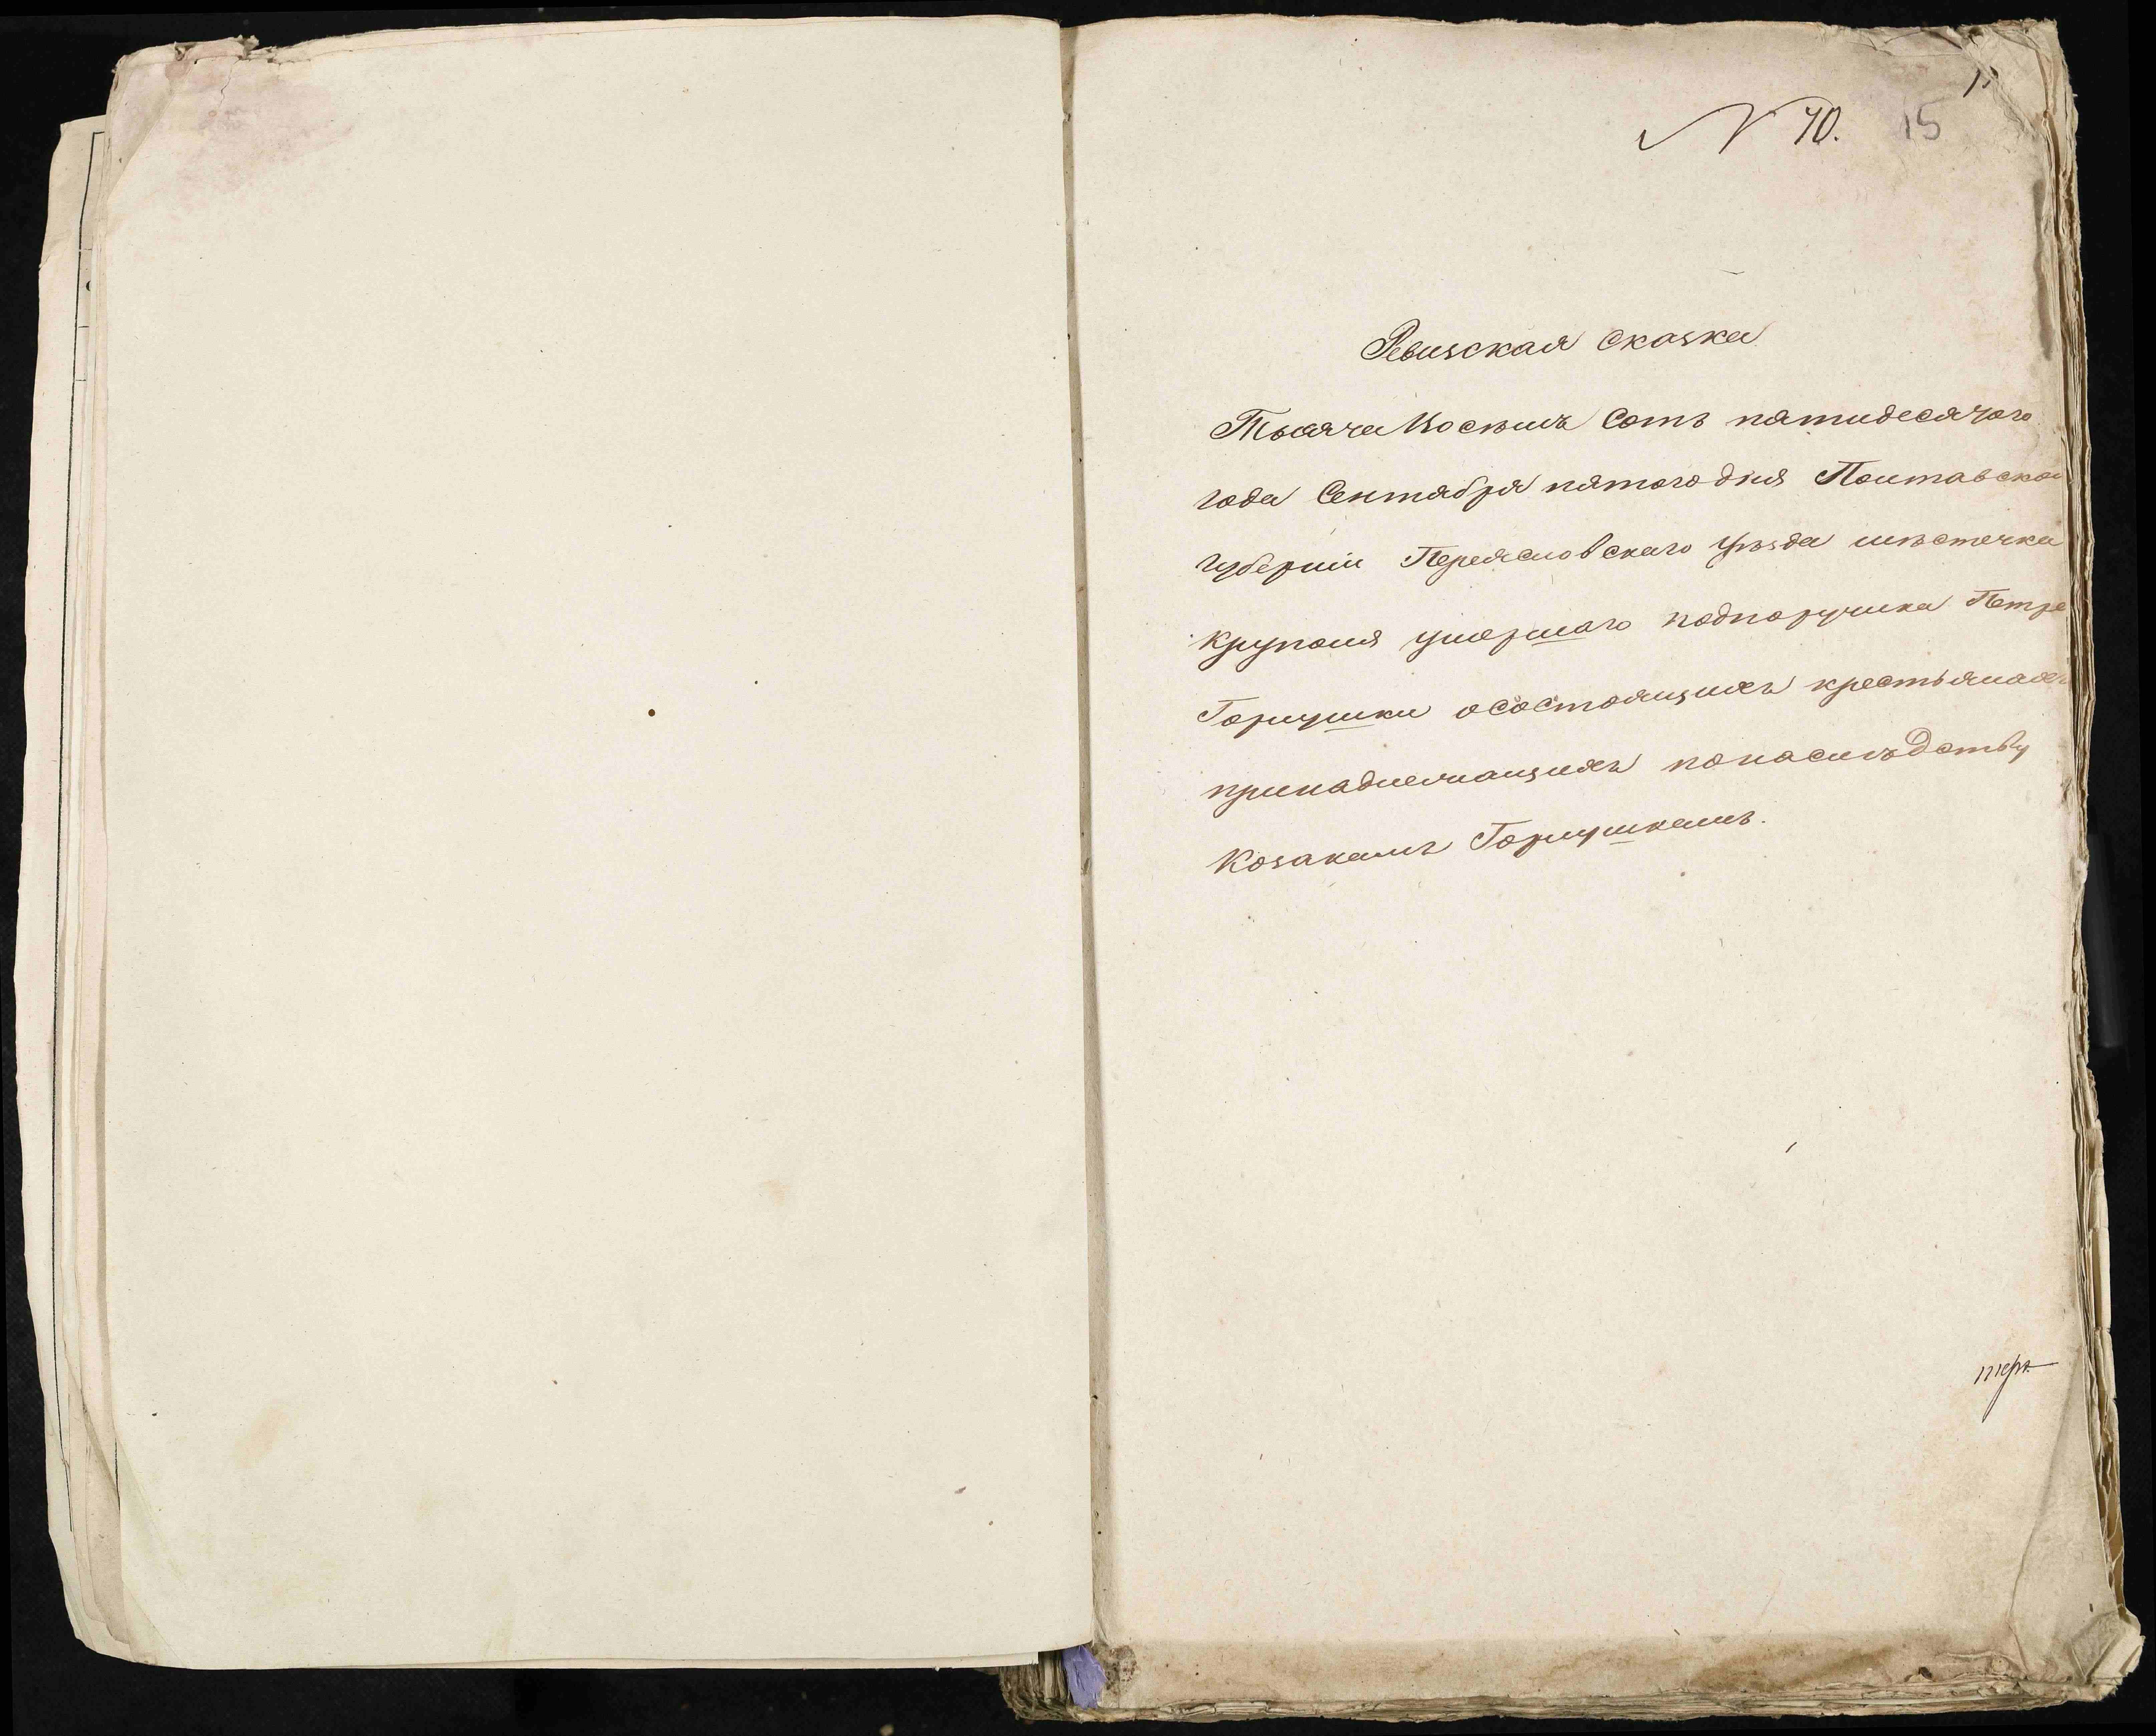 N 70. 15
Ревизская сказка
Тысяча Восѣмъ Сотъ пятидесятого
года Сентября пятого дня Полтавской
губерніи Переясловскаго уѣзда мѣстечка
Круполя умершаго подпоручика Петра
Горчушки о состоящихъ крестьянахъ
принадлежащихъ по наслѣдству
Козакамъ Горчушкамъ.